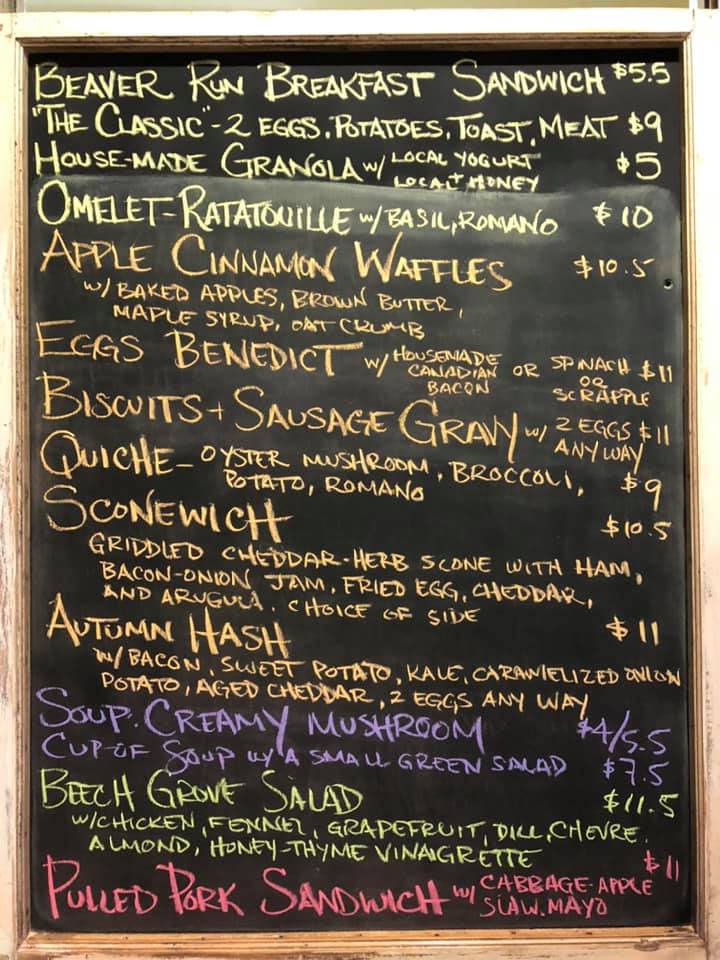 BEAVER RUN BREAKFAST SANDWICH $5.5
"THE CLASSIC" - 2 EGGS, POTATOES, TOAST, MEAT $9
HOUSE-MADE GRANOLA w/ LOCAL YOGURT + $5
LOCAL HONEY
OMELET - RATATOUILLE w/ BASIL, ROMANO $10
APPLE CINNAMON WAFFLES $10.5
w/ BAKED APPLES, BROWN BUTTER,
MAPLE SYRUP, OAT CRUMB
EGGS BENEDICT w/ HOUSEMADE CANADIAN BACON OR SPINACH OR SCRAPPLE $11
BISCUITS + SAUSAGE GRAVY w/ 2 EGGS ANY WAY $11
QUICHE - OYSTER MUSHROOM, BROCCOLI,
POTATO, ROMANO $9
SCONEWICH $10.5
GRIDDLED CHEDDAR-HERB SCONE WITH HAM,
BACON-ONION JAM, FRIED EGG, CHEDDAR,
AND ARUGULA. CHOICE OF SIDE
AUTUMN HASH $11
w/ BACON, SWEET POTATO, KALE, CARAMELIZED ONION
POTATO, AGED CHEDDAR, 2 EGGS ANY WAY
SOUP. CREAMY MUSHROOM $4/5.5
CUP OF SOUP w/ A SMALL GREEN SALAD $7.5
BEECH GROVE SALAD $11.5
w/ CHICKEN, FENNEL, GRAPEFRUIT, DILL, CHEVRE,
ALMOND, HONEY-THYME VINAIGRETTE
PULLED PORK SANDWICH w/ CABBAGE-APPLE SLAW. MAYO $11